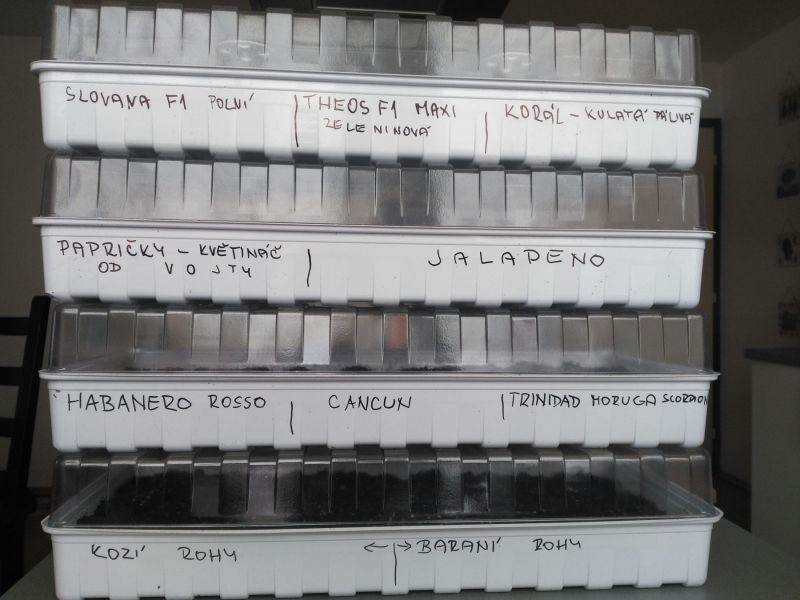 SLOVANA F1 POLNÍ
THEOS F1 MAXI
ZELENINOVÁ
KORÁL - KULATÁ PÁLIVÁ
PAPRIČKY - KVĚTINÁČ
OD VOJTY
JALAPENO
HABANERO ROSSO
CANCUN
TRINIDAD MORUGA SCORPION
KOZÍ ROHY
←→ BARANÍ ROHY